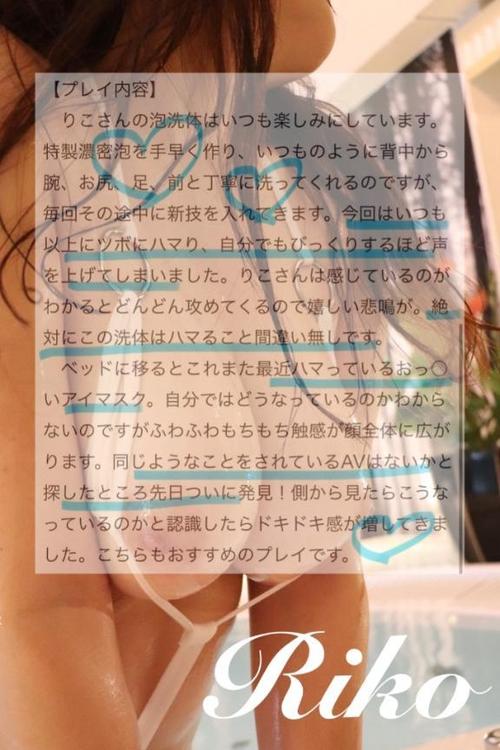 【プレイ内容】
りこさんの泡洗体はいつも楽しみにしています。
特製濃密泡を手早く作り、いつものように背中から
腕、お尻、足、前と丁寧に洗ってくれるのですが、
毎回その途中に新技を入れてきます。今回はいつも
以上にツボにハマり、自分でもびっくりするほど声
を上げてしまいました。りこさんは感じているのが
わかるとどんどん攻めてくるので嬉しい悲鳴が。絶
対にこの洗体はハマること間違い無しです。
ベッドに移るとこれまた最近ハマっているおっ〇
いアイマスク。自分ではどうなっているのかわから
ないのですがふわふわもちもち触感が顔全体に広が
ります。同じようなことをされているAVはないかと
探したところ先日ついに発見！側から見たらこうな
っているのかと認識したらドキドキ感が増してきま
した。こちらもおすすめのプレイです。
Riko